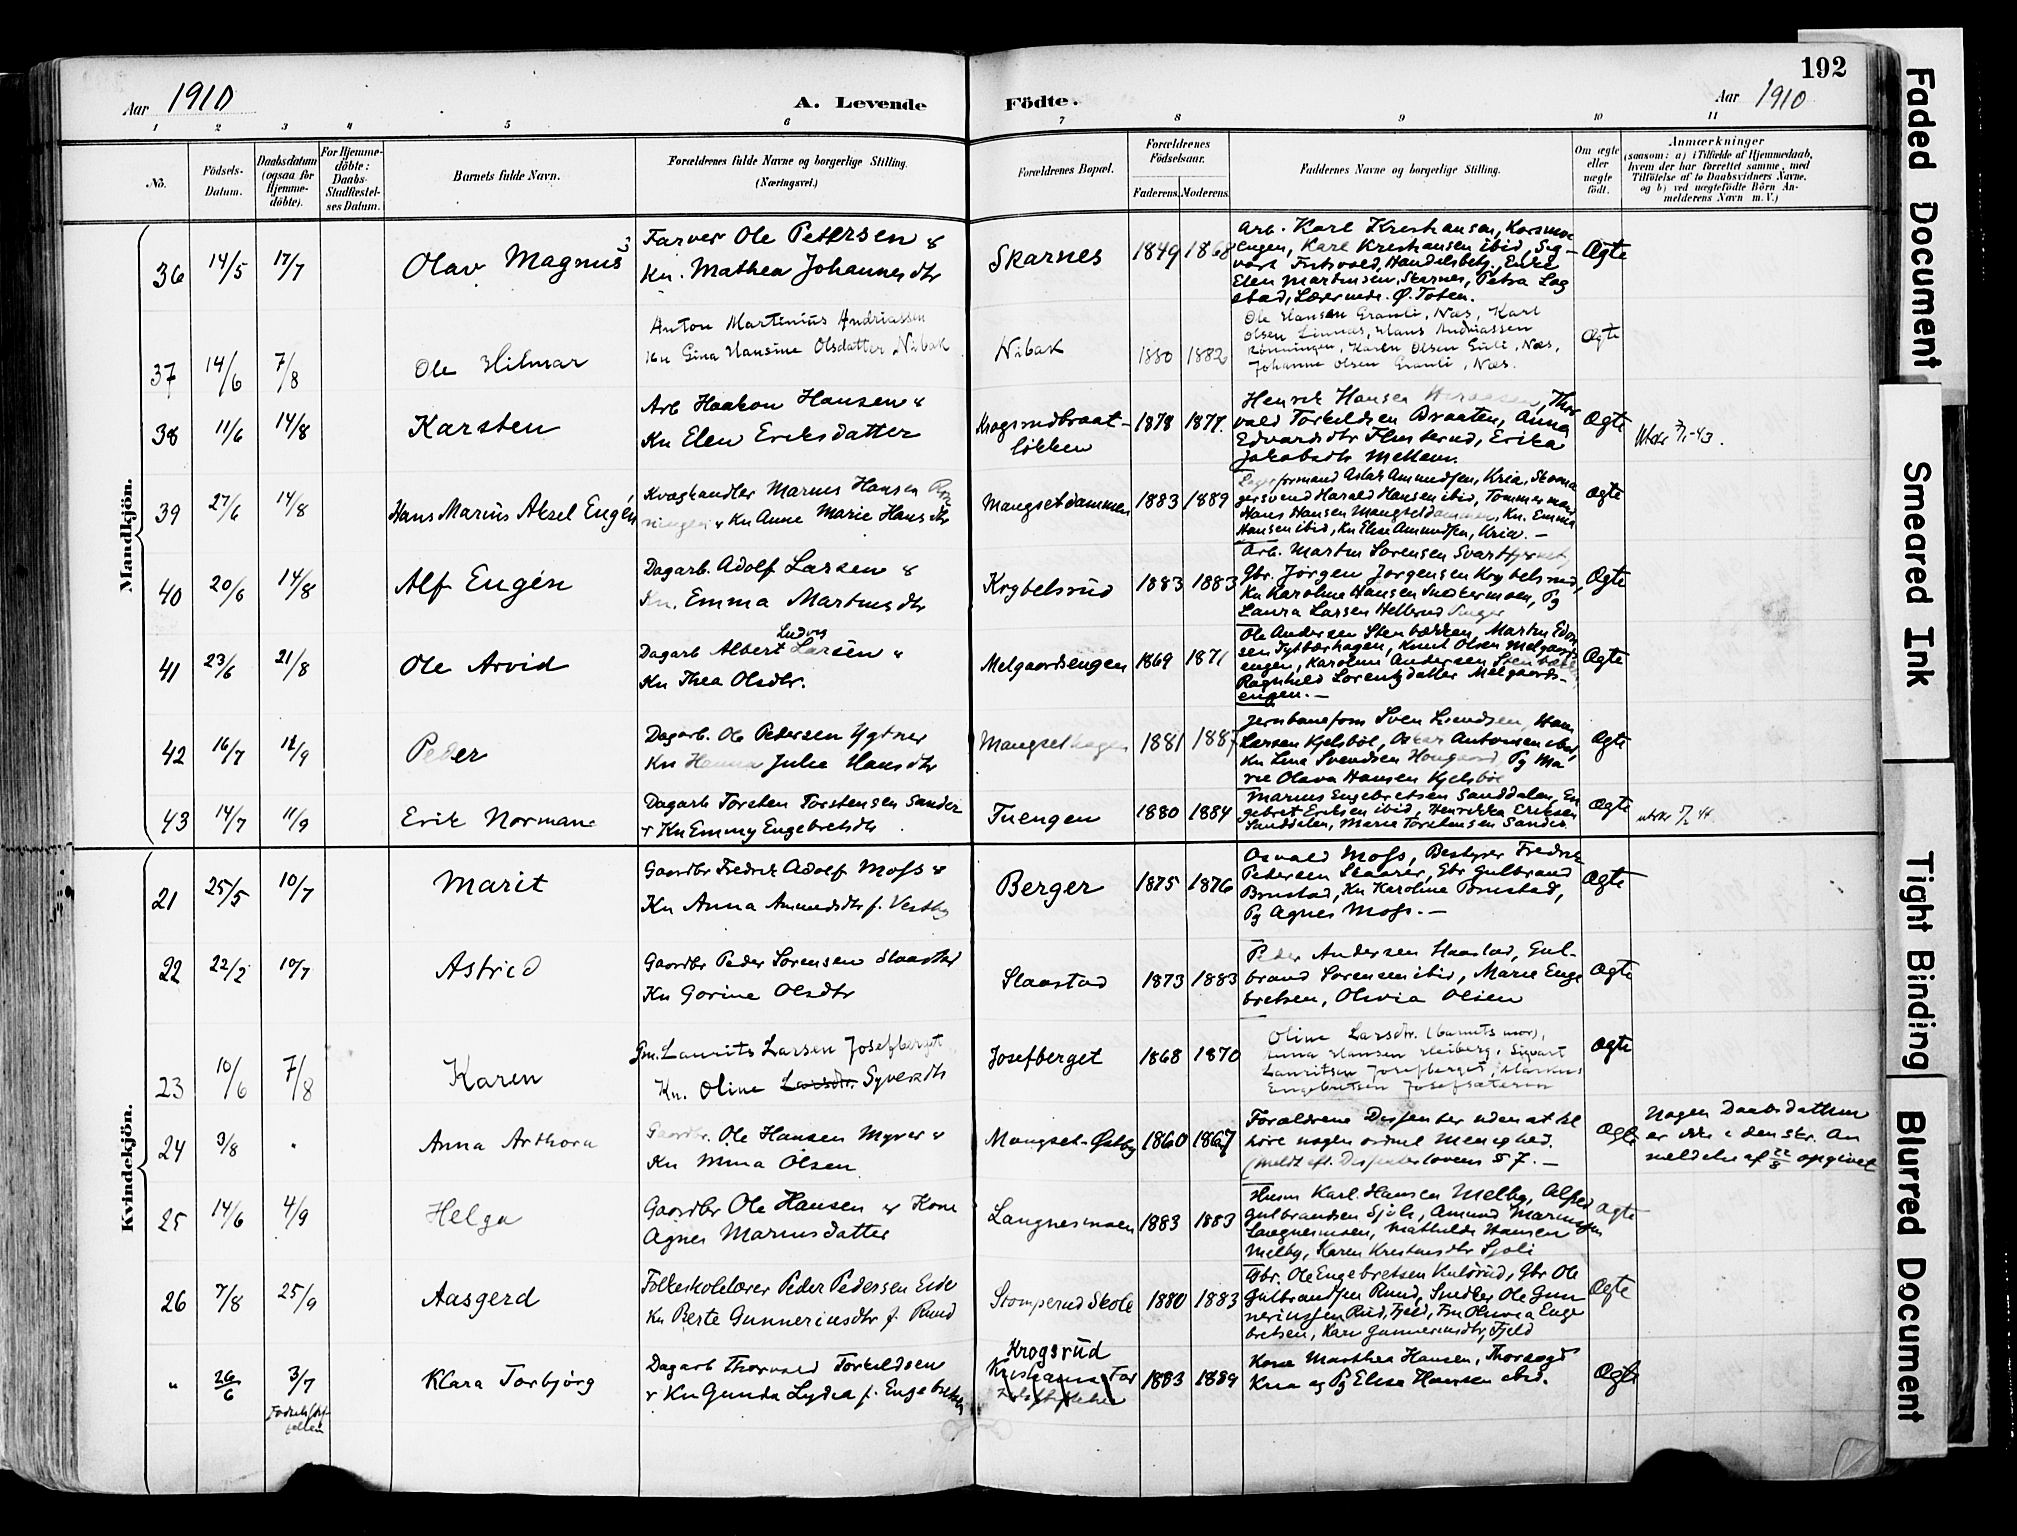 192
Aar 1910
A. Levende
Födte.
Aar 1910
1 2 3 4 5 6 7 8 9 10 11
No.
Födsels-
Datum.
Daabsdatum
(ogsaa for
Hjemme-
döbte).
For Hjemme-
döbte:
Daabs-
Stadfæstel-
ses Datum.
Barnets fulde Navn.
Forældrenes fulde Navne og borgerlige Stilling.
(Næringsvei.)
Forældrenes Bopæl.
Forældrenes
Födselsaar.
Faderens. Moderens.
Faddernes Navne og borgerlige Stilling.
Om ægte
eller
uægte
født.
Anmærkninger
(saasom: a) i Tilfælde af Hjemmedaab,
hvem der har forrettet samme, med
Tilföielse af to Daabsvidners Navne,
og b) ved uægtefödte Börn An-
melderens Navn m. V.)
Mandkjön.
36 14/5 17/7 Olav Magnus
Farver Ole Petersen &
Kn. Mathea Johannesdtr
Skarnes 1849 1868
Arb. Karl Kristiansen, Korsmo
engen, Karl Kristiansen ibid, Sig-
vart Fritsvold, Handelsbetj., Enke
Elen Martinsen, Skarnes, Petra Log
stad, Lærerinde. Ø. Toten.
Ægte
37 14/6 7/8 Ole Hilmar
Anton Martinius Andriassen
Kn Gina Hansine Olsdatter Nibak
Nibak 1880 1882
Ole Hansen Granli, Næs, Karl
Olsen Linnæs, Hans Andriassen
Rønningen, Karen Olsen Guli, Næs,
Johanne Olsen Granli, Næs.
Ægte
38 11/6 14/8 Karsten
Arb Haakon Hansen &
Kn Elen Eriksdatter
Krogsrudbraat-
løkken
1878 1877.
Henrik Hansen Thor
vald Torkildsen Braaten, Anna
Edvardsdtr Flusterud, Erika
Jakobsdtr Mellem.
Ægte
39 27/6 14/8 Hans Marius Aksel Eugén
Kvæghandler Marius Hansen Røn
ningen & Kn Anne Marie Hansdtr
Mangsetdammen 1883 1889
Lagerformand Aslak Amundsen, Kria, Skoma
gersvend Harald Hansen ibid, Tømmermand
Hans Hansen Mangsetdammen, Kn. Emma
Hansen ibid, Kn Elise Amundsen, Kria. —
ægte
40 20/6 14/8 Alf Eugén
Dagarb. Adolf Larsen &
Kn. Emma Martinsdtr
Krybelsrud 1883 1883
Arb. Martin Sørensen
Gbr. Jørgen Jørgensen Krybelsrud,
Kn Karoline Hansen Snekkermoen, Pg
Laura Larsen Hellerud
Ægte
41 23/6 21/8 Ole Arvid
Ludvig
Dagarb Albert Larsen &
Kn Thea Olsdtr.
Melgaardsengen 1869 1871
Ole Andersen Stenbækken, Martin Edvar
sen Tytbærhagen, Knut Olsen Melgaards
engen, Karoline Andersen Stenbæk,
Ragnhild Lorentzdatter Melgaards-
engen. —
Ægte
42 16/7 11/9 Peder
Dagarb. Ole Pedersen Ygtner
Kn Hanna Julie Hansdtr
Mangsethagen 1881 1887
Jernbaneform Sven Svendsen,
Larsen Kjelsbøl, Oskar Antonsen ibid,
Kn Lina Svendsen Hougaard, Pg Ma
rie Olava Hansen Kjelsbøl
Ægte
43 14/7 11/9 Erik Norman
Dagarb Torsten Torstensen Sander
& Kn Emmy Engebretsdtr
Tuengen 1880 1884
Marius Engebretsen Sanddalen, En
gebret Eriksen ibid, Henrikka Eriksen
Sanddalen, Marie Torstensen Sander
Ægte
Kvindekjön.
21 25/5 10/7 Marit
Gaardbr Fredrik Adolf Moss &
Kn Anna Amundsdtr f. Vestby
Berger 1875 1876
Osvald Moss, Bestyrer Fredrik
Petersen Skaarer, Gbr Gulbrand
Brustad, Kn Karoline Brustad,
Pg Agnes Moss. —
Ægte
22 22/2 10/7 Astrid
Gaardbr Peder Sørensen Slaastad
Kn Gorine Olsdtr
Slaastad 1873 1883
Peder Andersen Haastad, Gul-
brand Sørensen ibid, Marie Enge
bretsen, Olivia Olsen
Ægte
23 10/6 7/8 Karen
Gm. Laurits Larsen Josefberget
Kn. Oline Larsdtr. Syversdtr
Josefberget 1868 1870
Oline Larsdtr. (barnets mor),
Anna Hansen Heiberg, Sigvart
Lauritsen Josefberget, Markus
Engebretsen Josefsæteren
Ægte
24 3/8 " Anna Arthora
Gaardbr. Ole Hansen Myrer &
Kn Mina Olsen
Mangset-Østby 1860 1867
Forældrene Dissenter uden at til
høre nogen ordnet Menighed.
(Meldt eft. Dissenterloven § 7. —
Ægte
Nogen Daabsdatum
er ikke i den skr. An
meldelse af 22/8 opgivet
25 14/6 4/9 Helga
Gaardbr Ole Hansen & Kone
Agnes Mariusdatter
Langnesmoen 1883 1883
Husm Karl Hansen Melby, Alfred
Gulbrandsen Sjøli, Amund Mariussen
Langnesmoen, Mathilde Hansen
Melby, Karen Kristensdtr Sjøli
Ægte
26 7/8 25/9 Aasgerd
Folkeskolelærer Peder Pedersen Eide
Kn Berte Gunneriusdtr f. Ruud
Stomperud Skole 1880 1883
Gbr. Ole Engebretsen Kulsrud, Gbr Ole
Gulbrandsen Ruud, Snedker Ole Gun
neriussen Rud, Fjeld, Fru Olivia Enge
bretsen, Karen Gunneriusdtr Fjeld
Ægte
" 26/6 3/7
Klara Torbjørg
Dagarb Thorvald Torkildsen
& Kn Gunda Lydia f. Engebretsen
Krogsrud
1883 1889
Kone Marthea Hansen,
Kria og Pg Elise Hansen ibid.
Ægte
Faded Document
Smeared Ink
Tight Binding
Blurred Document